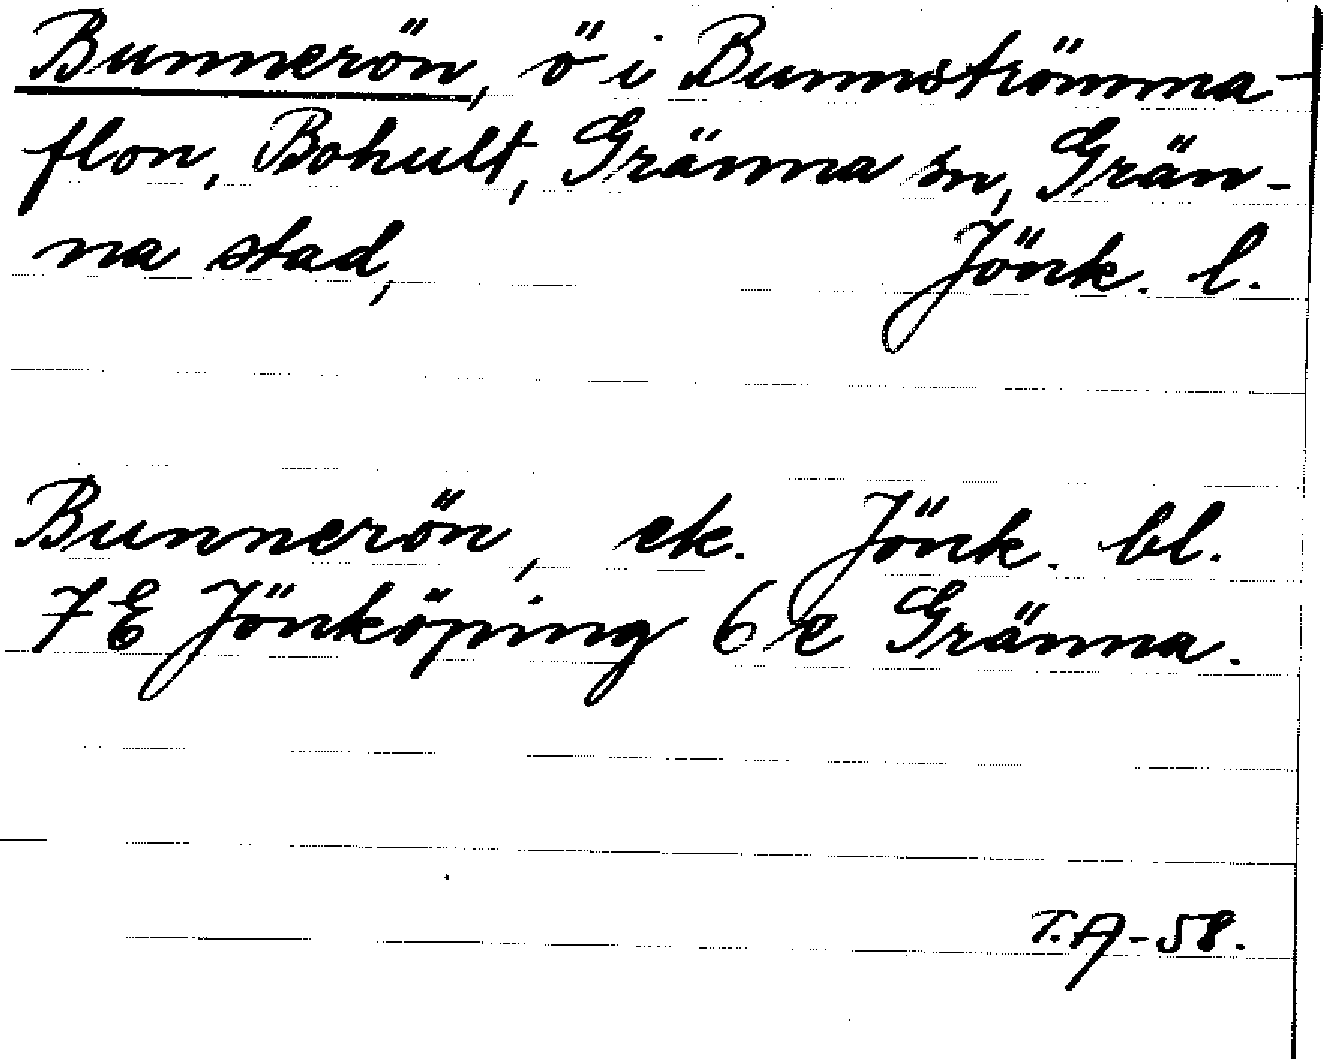 Bunnerön, ö i Bunnströmma-
flon, Bohult, Gränna sn, Grän-
na stad, Jönk. l.
Bunnerön, ek. Jönk. bl.
7E Jönköping 6e Gränna.
T.A-58.